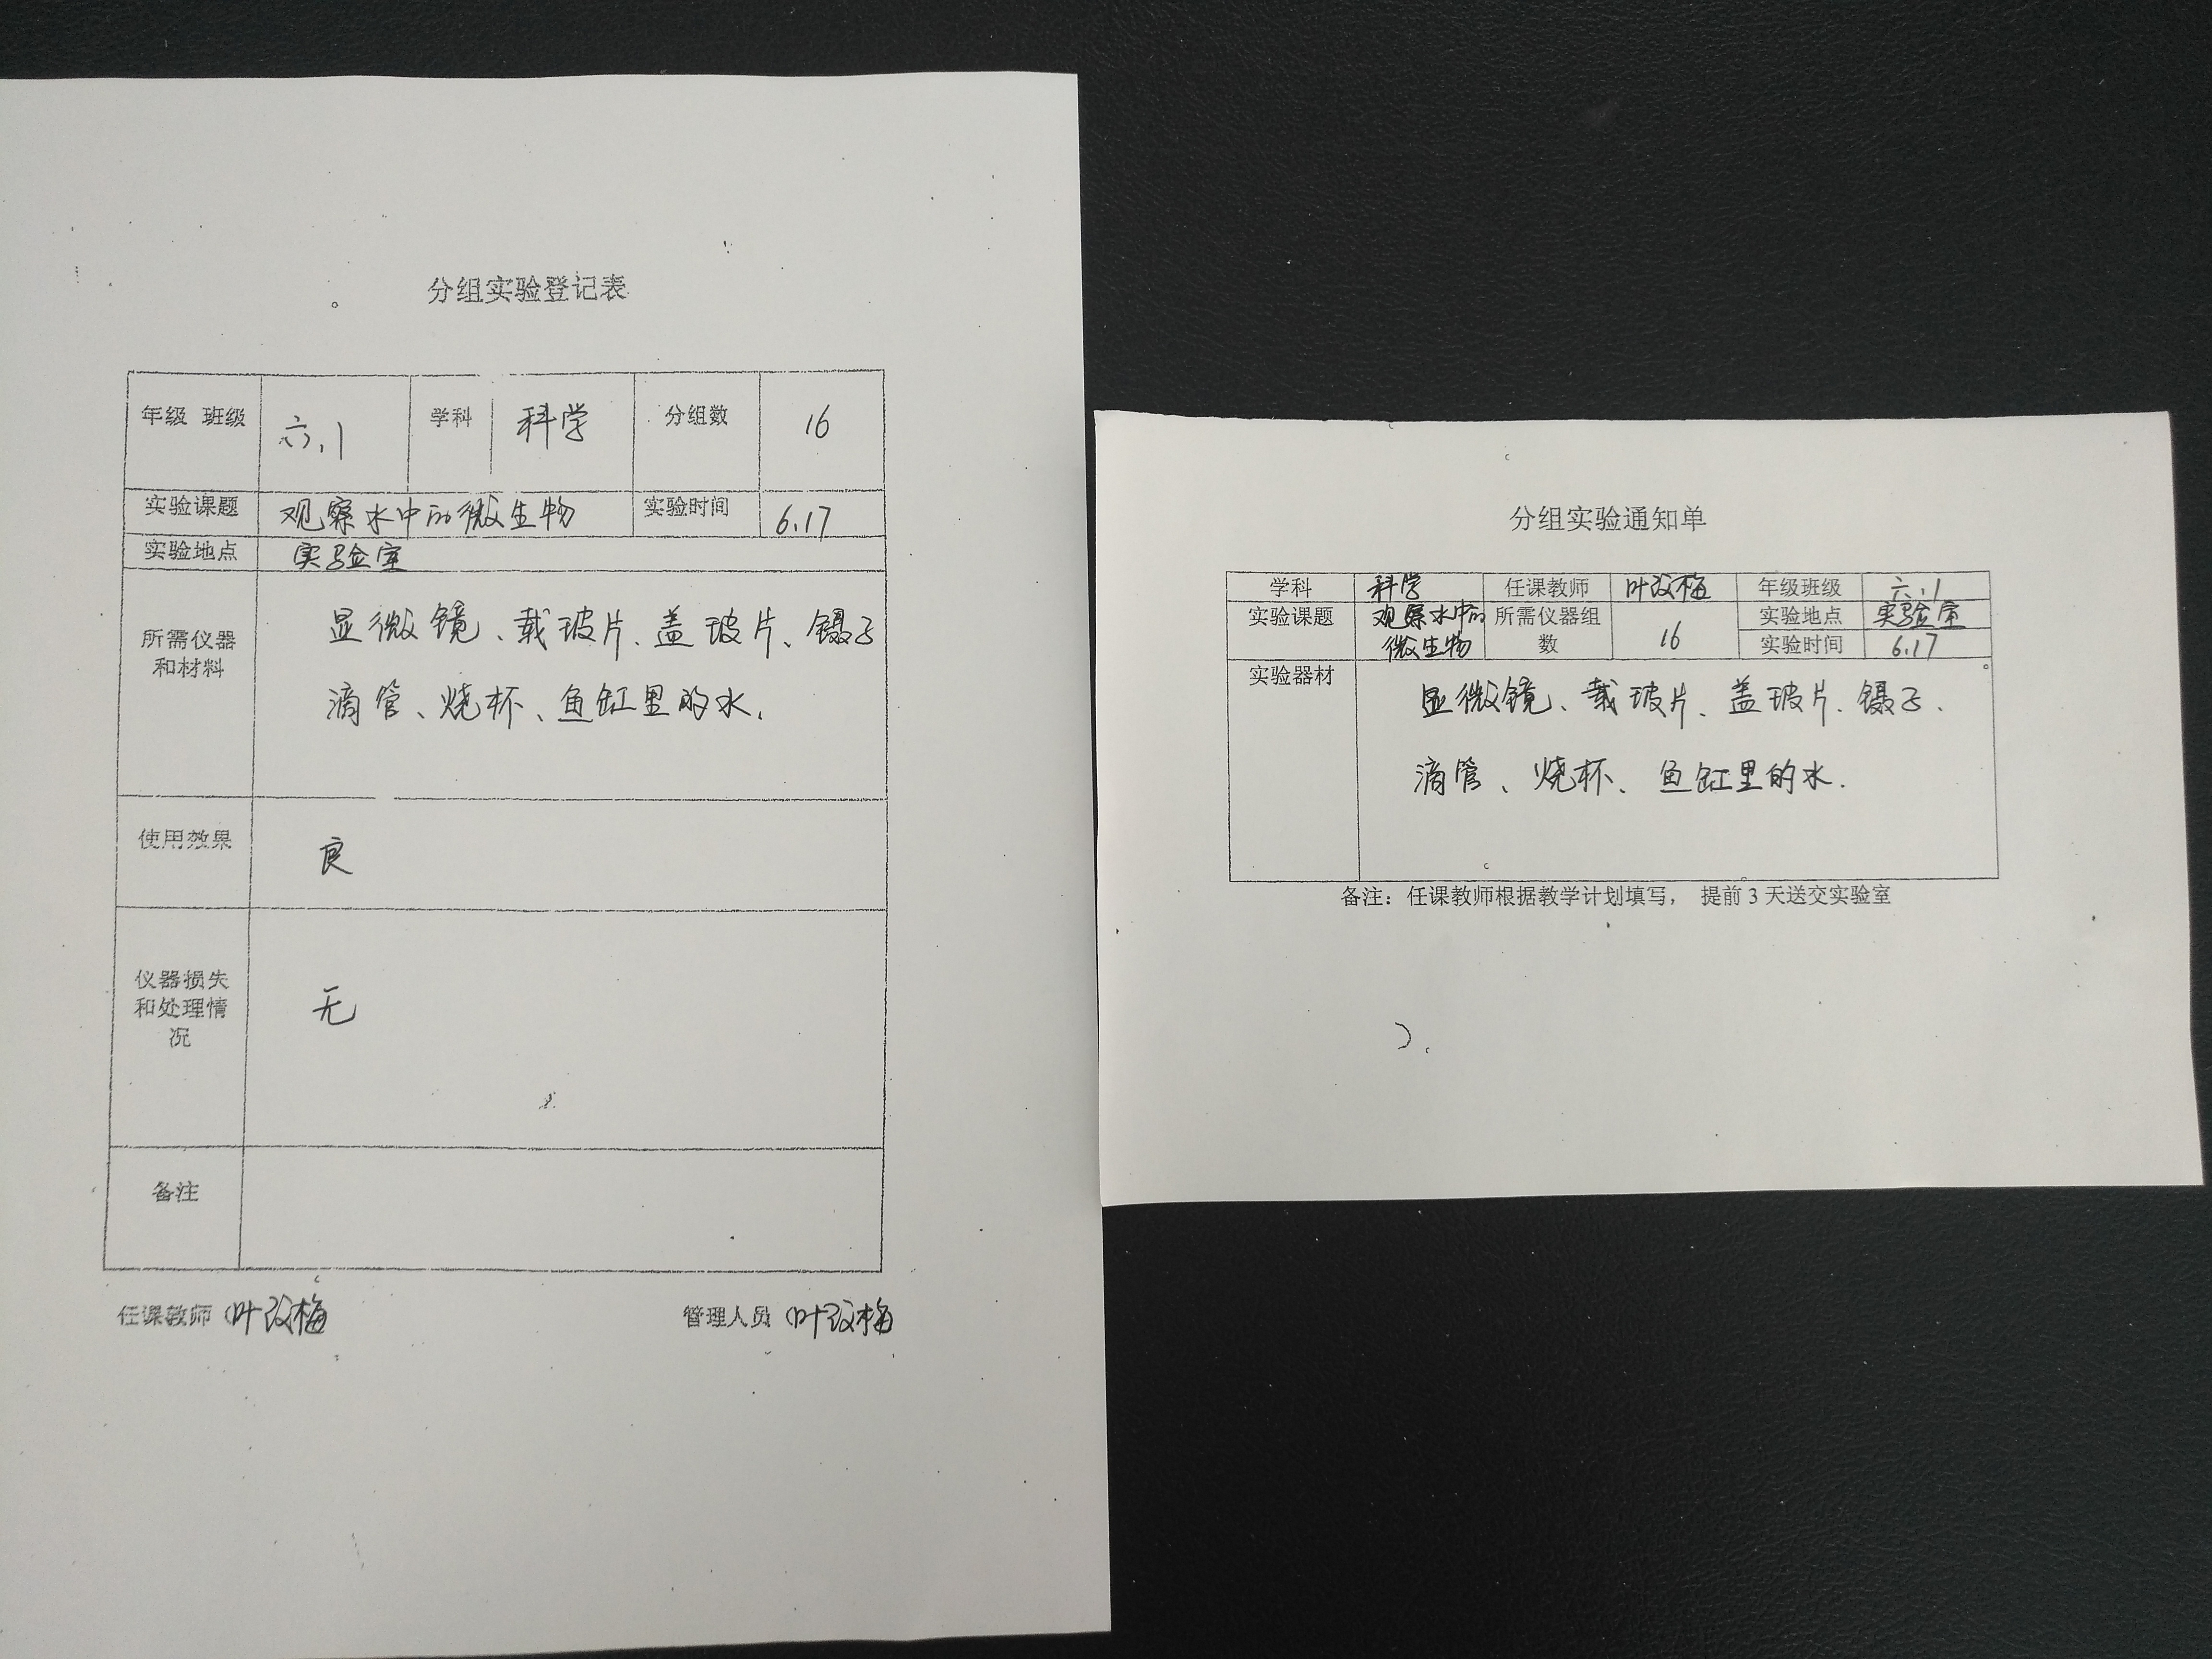 分组实验登记表
年级 班级 六.1 学科 科学 分组数 16
实验课题 观察水中的微生物 实验时间 6.17
实验地点 实验室
所需仪器
和材料
显微镜、载玻片、盖玻片、镊子
滴管、烧杯、鱼缸里的水.
使用效果 良
仪器损失
和处理情
况
无
备注
任课教师（叶改梅 管理人员（叶改梅
分组实验通知单
学科 科学 任课教师 叶改梅 年级班级 六.1
实验课题 观察水中的
微生物
所需仪器组
数
16
实验地点 实验室
实验时间 6.17
实验器材
显微镜、载玻片、盖玻片.镊子.
滴管、烧杯、鱼缸里的水.
备注：任课教师根据教学计划填写， 提前 3 天送交实验室